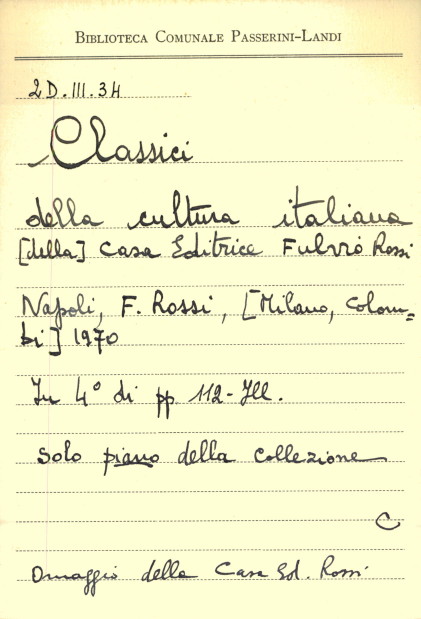 BIBLIOTECA COMUNALE PASSERINI-LANDI
2D.III.34
Classici
della cultura italiana
[della] Casa Editrice Fulvio Rossi
Napoli, F. Rossi, [Milano, Colom=
bi] 1970
In 4° di pp. 112 - Ill.
Solo piano della collezione
C
Omaggio della Casa Ed. Rossi